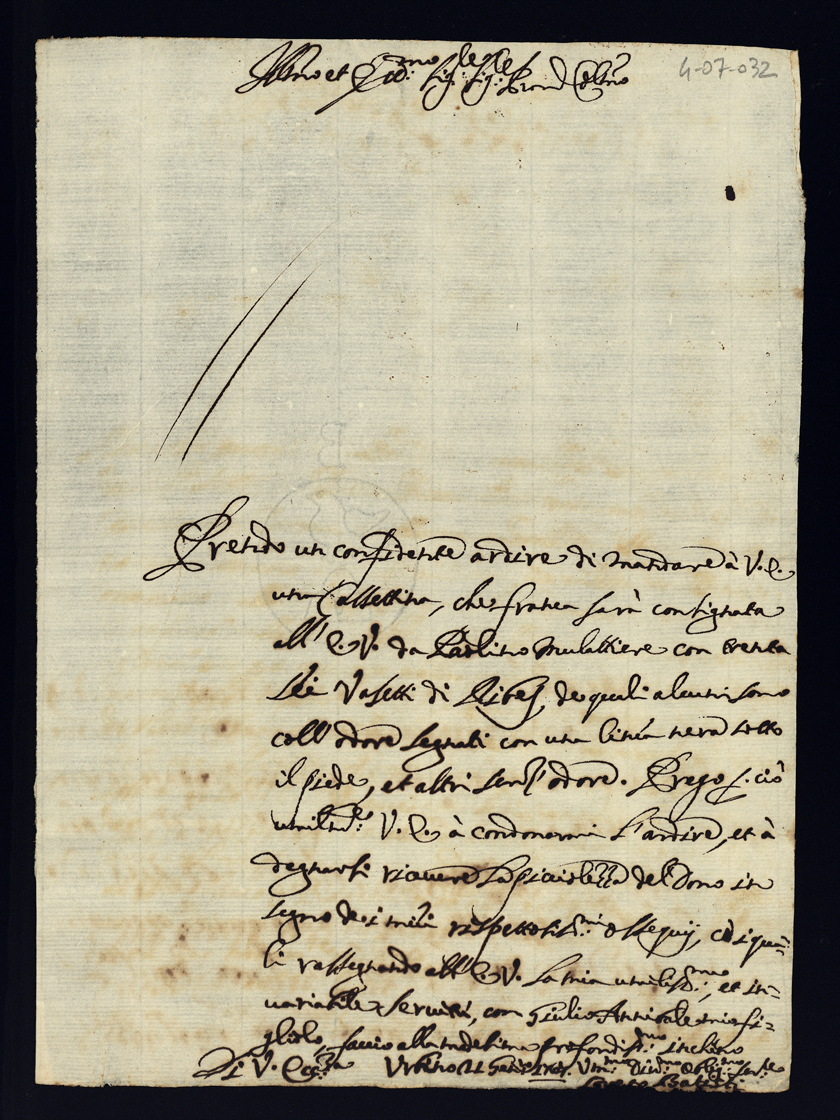 Ill.mo et Ecc.mo Sig.re Sig.re Pron Col.mo
4-07-032
Prendo un confidente ardire di mandare à V.E.
una Cassettina, che franca sarà consignata
all'E.V. da Paolino Mulattiere con trenta
sei Vasetti di Ribes, de quali alcuni sono
coll'odore segnati con una linea nera sotto
il piede, et altri senz'odore. Prego p. ciò
umilm.te V.E. à condonarmi l'ardire, et à
degnarsi ricevere la picciolezza del Dono in
segno de i miei rispettosis.mi ossequij, co i qua=
li rassegnando all'E.V. la mia umilis.ma, et in=
variabile servitù, con Giulio Annibale mio fi=
gliolo, faccio alla medesima profondis.mo inchino
Di V. Ecc.za Urbino 21 Um.mo Div.mo Oblig.mo Ser.re